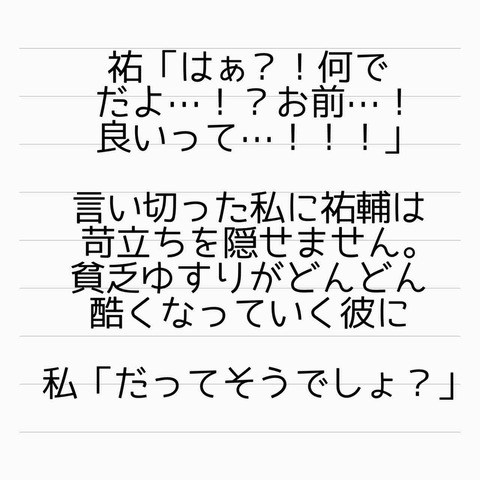 祐「はぁ？！何で
だよ…！？お前…！
良いって…！！！」
言い切った私に祐輔は
苛立ちを隠せません。
貧乏ゆすりがどんどん
酷くなっていく彼に
私「だってそうでしょ？」